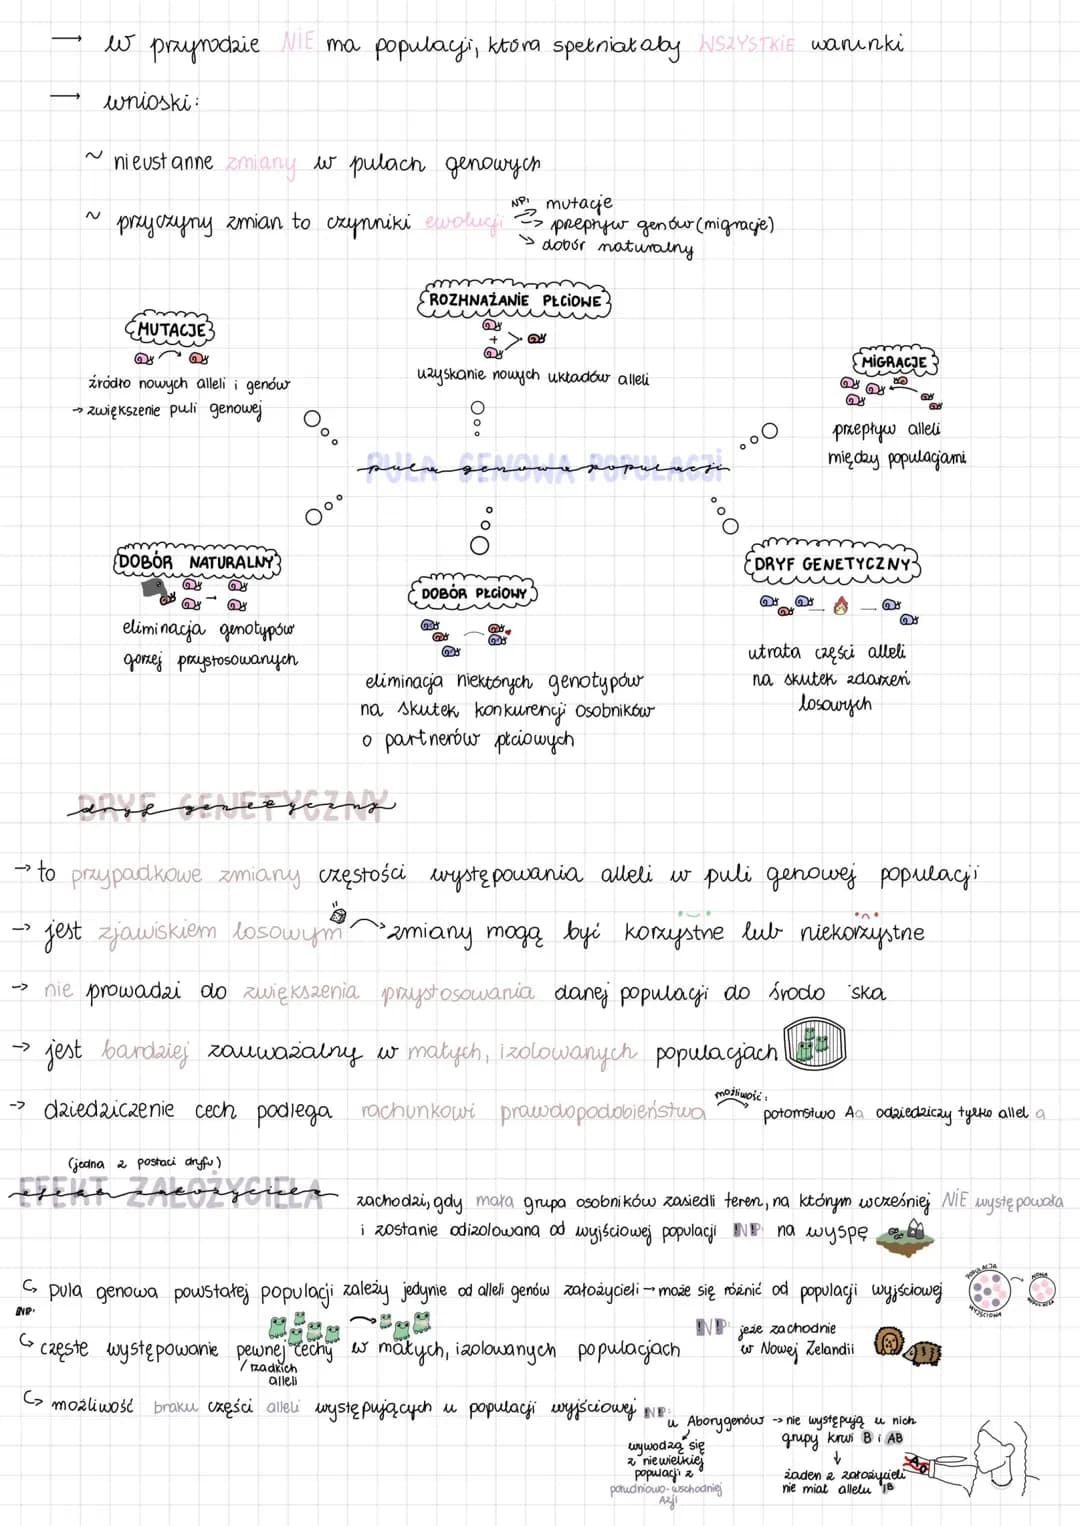 → w przyrodzie NIE ma populacji, która spełniałaby WSZYSTKIE warunki
→ wnioski:
~ nieustanne zmiany w pulach genowych
~ przyczyny zmian to czynniki ewolucji NP: → mutacje
→ przepływ genów (migracje)
→ dobór naturalny
ROZMNAŻANIE PŁCIOWE
uzyskanie nowych układów alleli
MUTACJE
źródło nowych alleli i genów
→ zwiększenie puli genowej
MIGRACJE
przepływ alleli
między populacjami
PULA GENOWA POPULACJI
pula genowa populacji
DOBÓR NATURALNY
eliminacja genotypów
gorzej przystosowanych
DOBÓR PŁCIOWY
eliminacja niektórych genotypów
na skutek konkurencji osobników
o partnerów płciowych
DRYF GENETYCZNY
utrata części alleli
na skutek zdarzeń
losowych
DRYF GENETYCZNY
dryf genetyczny
→ to przypadkowe zmiany częstości występowania alleli w puli genowej populacji
→ jest zjawiskiem losowym → zmiany mogą być korzystne lub niekorzystne
→ nie prowadzi do zwiększenia przystosowania danej populacji do środo ska
→ jest bardziej zauważalny w małych, izolowanych populacjach
→ dziedziczenie cech podlega rachunkowi prawdopodobieństwa możliwość: → potomstwo Aa odziedziczy tylko allel a
(jedna z postaci dryfu)
EFEKT ZAŁOŻYCIELA
efekt założyciela
zachodzi, gdy mała grupa osobników zasiedli teren, na którym wcześniej NIE występowała
i zostanie odizolowana od wyjściowej populacji NP: na wyspę
↳ pula genowa powstałej populacji zależy jedynie od alleli genów założycieli → może się różnić od populacji wyjściowej
POPULACJA WYJŚCIOWA
NOWA POPULACJA
NP:
↳ częste występowanie pewnej cechy / rzadkich alleli w małych, izolowanych populacjach
NP: jeże zachodnie
w Nowej Zelandii
↳ możliwość braku części alleli występujących u populacji wyjściowej NP:
u Aborygenów → nie występują u nich
grupy krwi B i AB
wywodzą się
z niewielkiej
populacji z
południowo-wschodniej
Azji
żaden z założycieli
nie miał allelu IB